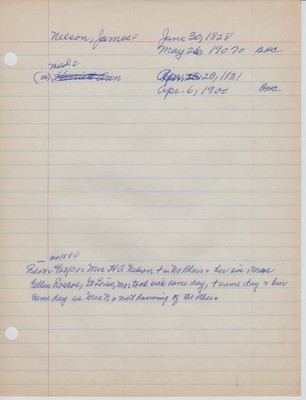 Nelson, James June 30, 1828
May 26 1907 BHC
Mrs.
(ux) Harriett Ann Apr. 28, 1831
Apr. 6, 1900 BHC
no 1880
4/12/00 Mrs H A Nelson + in Blair + her sis, Mrs
Ellen Roscoe, St Louis, Mo, took sick same day, + same day + bur
same day as Mrs N. + not knowing of the other.